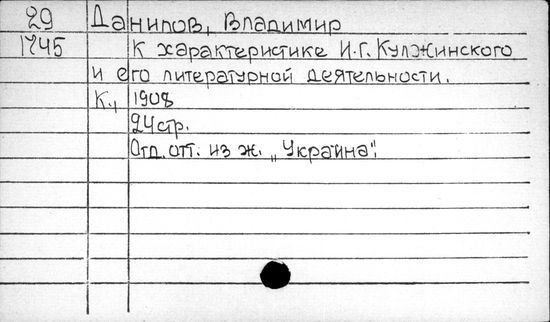 29 Данилов, Владимир
1745 К характеристике И.Г. Кулжинского
и его литературной деятельности.
К., 1908
24стр.
Отд. отт. из ж. „Украина".